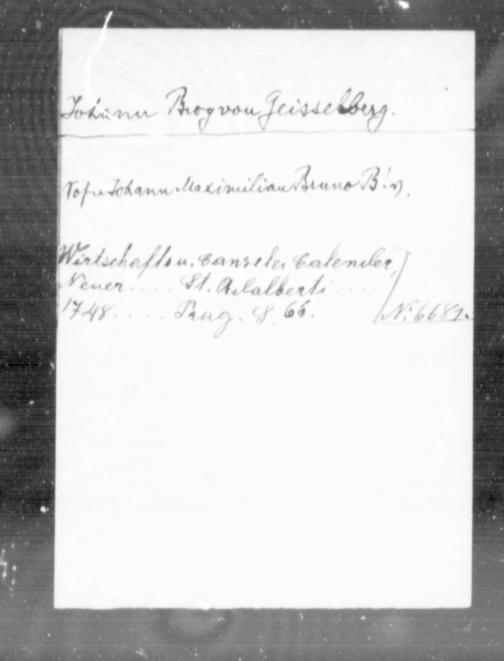 Johann Brog von Geisselberg.
Johann Maximilian Bruno B. v.
Wirtschafts u. Canzelei Calender,
Neuer .... St. Adalberti ....
1748. .... Prag. S. 66.
N: 6682.